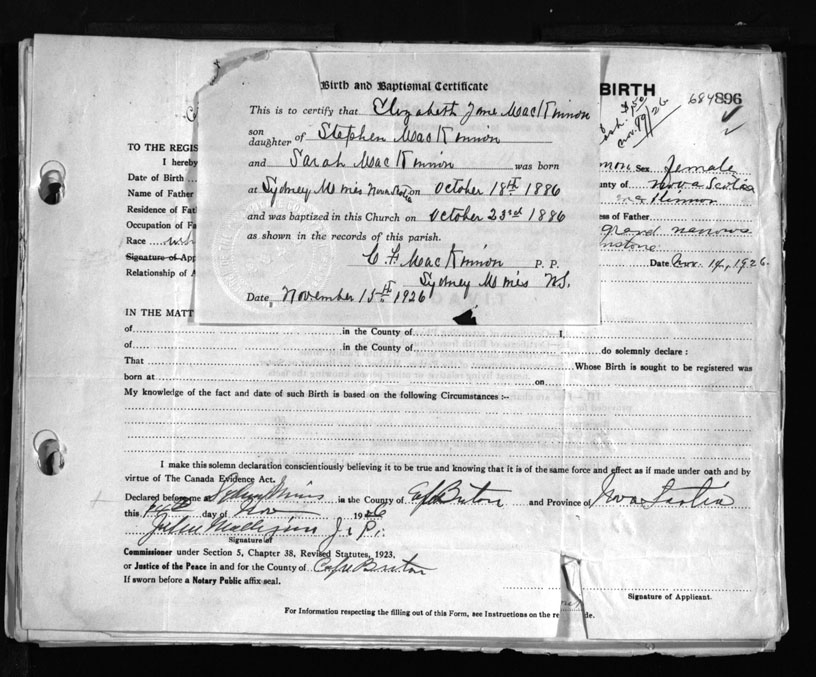 Birth and Baptismal Certificate
This is to certify that Elizabeth Jane MacKinnon
son
daughter of Stephen MacKinnon
and Sarah MacKinnon was born
at Sydney Mines Nova Scotia on October 18th 1886
and was baptized in this Church on October 23rd 1886
as shown in the records of this parish.
C F MacKinnon P. P.
Sydney Mines N.S.
Date November 15th 1926
BIRTH
684896
TO THE REGIS
I hereby
non Sex female
Date of Birth
nty of Nova Scotia
Name of Father
Residence of Fat
ess of Father
Occupation of Fa
grand narrows
Race
Signature of App
Date Nov. 14, 1926
Relationship of A
IN THE MATT
of in the County of I,
of in the County of do solemnly declare :
That Whose Birth is sought to be registered was
born at on
My knowledge of the fact and date of such Birth is based on the following Circumstances :-
I make this solemn declaration conscientiously believing it to be true and knowing that it is of the same force and effect as if made under oath and by
virtue of The Canada Evidence Act.
Declared before me at Sydney Mines in the County of Cape Breton and Province of Nova Scotia
this 14th day of Nov 1926
J. P.
Signature of
Commissioner under Section 5, Chapter 38, Revised Statutes, 1923,
or Justice of the Peace in and for the County of Cape Breton
If sworn before a Notary Public affix seal.
Signature of Applicant.
For Information respecting the filling out of this Form, see Instructions on the re de.